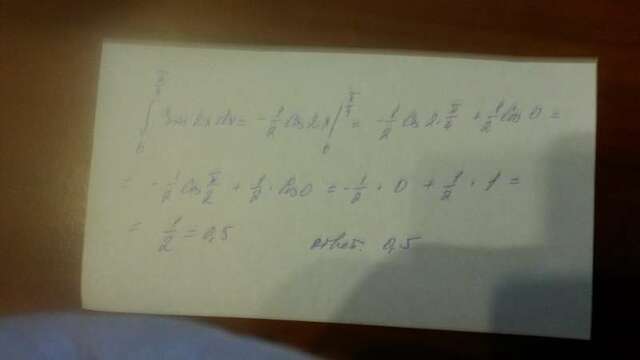 ∫₀^{π/4} sin 2x dx = -1/2 cos 2x |₀^{π/4} = -1/2 cos 2·π/4 + 1/2 cos 0 =
= -1/2 cos π/2 + 1/2 · cos 0 = -1/2 · 0 + 1/2 · 1 =
= 1/2 = 0,5 ответ: 0,5